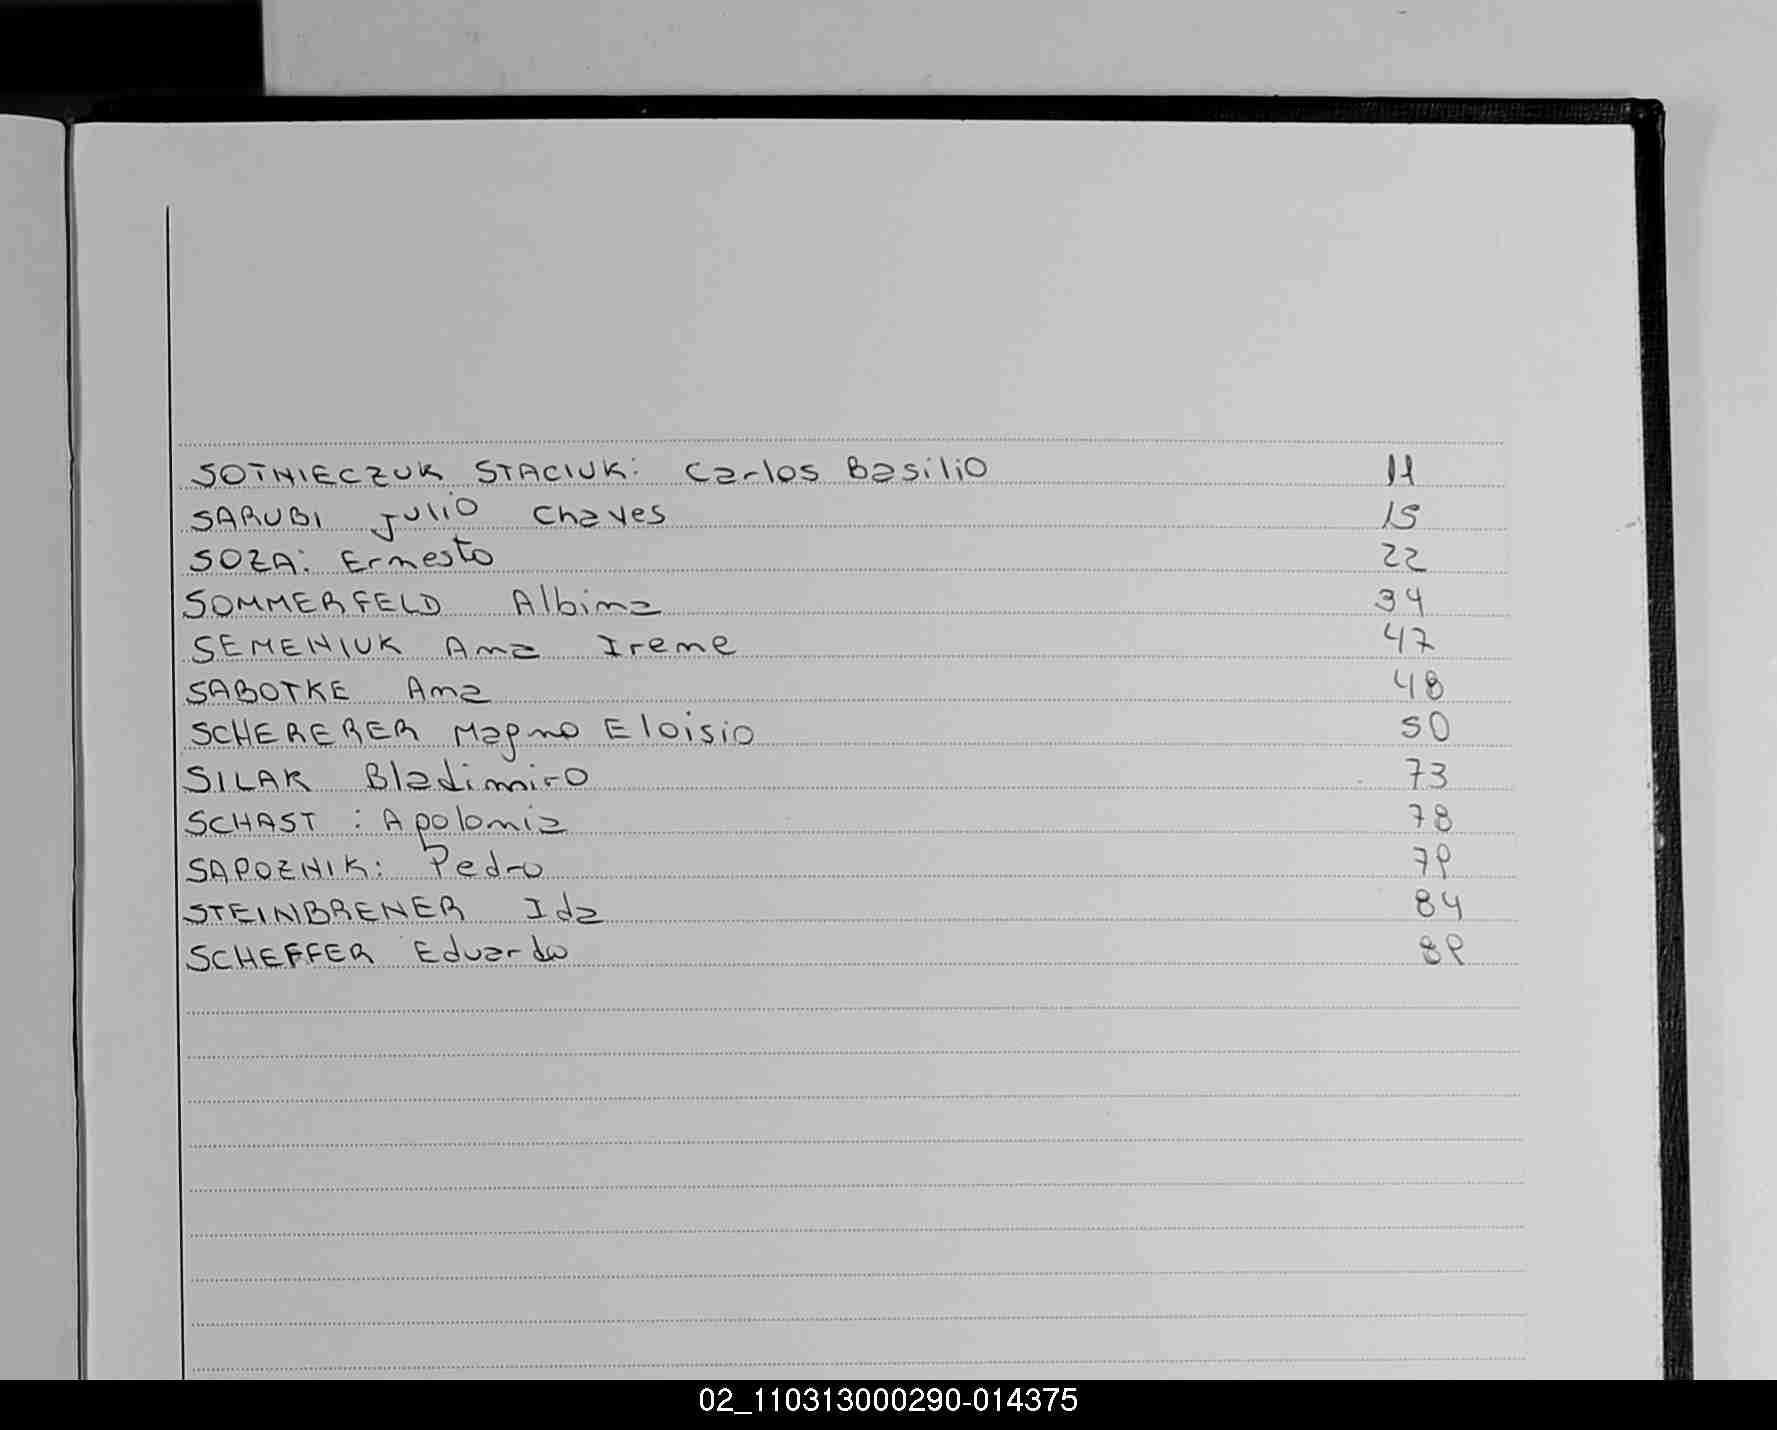 SOTNIECZUK STACIUK: Carlos Basilio 11
SARUBI Julio Chaves 15
SOZA: Ernesto 22
SOMMERFELD Albina 34
SEMENIUK Ana Irene 47
SABOTKE Ana 48
SCHERERER Magno Eloisio 50
SILAK Bladimiro 73
SCHAST : Apolonia 78
SAPOZNIK: Pedro 79
STEINBRENER Ida 84
SCHEFFER Eduardo 89
02_110313000290-014375